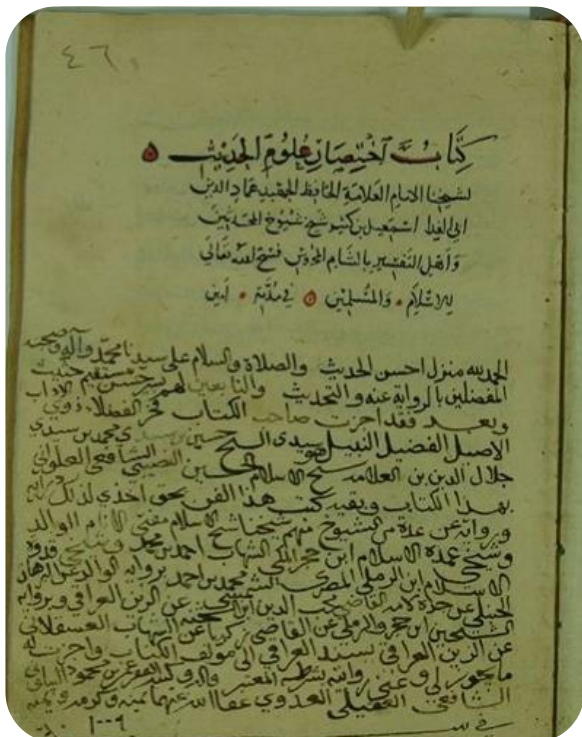 ٤٦
كتاب اختصار علوم الحديث ه
لشيخنا الامام العلامة الحافظ المفيد عماد الدين
ابى الفدا اسمعيل بن كثير شيخ شيوخ المحدثين
واهل التفسير بالشام المحروس فسح الله تعالى
للاسلام والمسلمين ه في مدته امين
الحمد لله منزل احسن الحديث والصلاة والسلام على سيدنا محمد وآله وصحبه
المفضلين بالرواية عنه والتحديث والتابعين لهم
وبعد فقد اجزت صاحب الكتاب فخر الفضلاء ذوي الاداب
الاصيل الفضيل النبيل سيدى الشيخ حسين بن سيدي محمد بن سيدي
جلال الدين بن العلامه شيخ الاسلام الحسين النصيبي الشافعي العلواني
بهذا الكتاب وبقية كتب هذا الفن بحق اخذي لذلك
وروايته عن عدة من الشيوخ منهم شيخنا شيخ الاسلام مفتي الوالد
وشيخي عمدة الاسلام ابن حجر المكي الشهاب احمد بن محمد وشيخي قدوة
الاسلام ابن الرملي المصري الشمس محمد بن احمد بروايه الوالد عن
الحنبلي عن جلال القاضي محب الدين ابن الشحنه عن الزين العراقي وبرواية
الشيخين ابن حجر والرملي عن القاضي زكريا عن الشهاب العسقلاني
عن الزين العراقي بسند العراقي الى مؤلف الكتاب واجزت له
ما يجوز لي وعني روايته بشرطه المعتبر وانا عمر بن محمود البابي
الشافعي العقيلي العدوي عفا الله عنهما بمنه وكرمه
في سنة ١٠٠٩